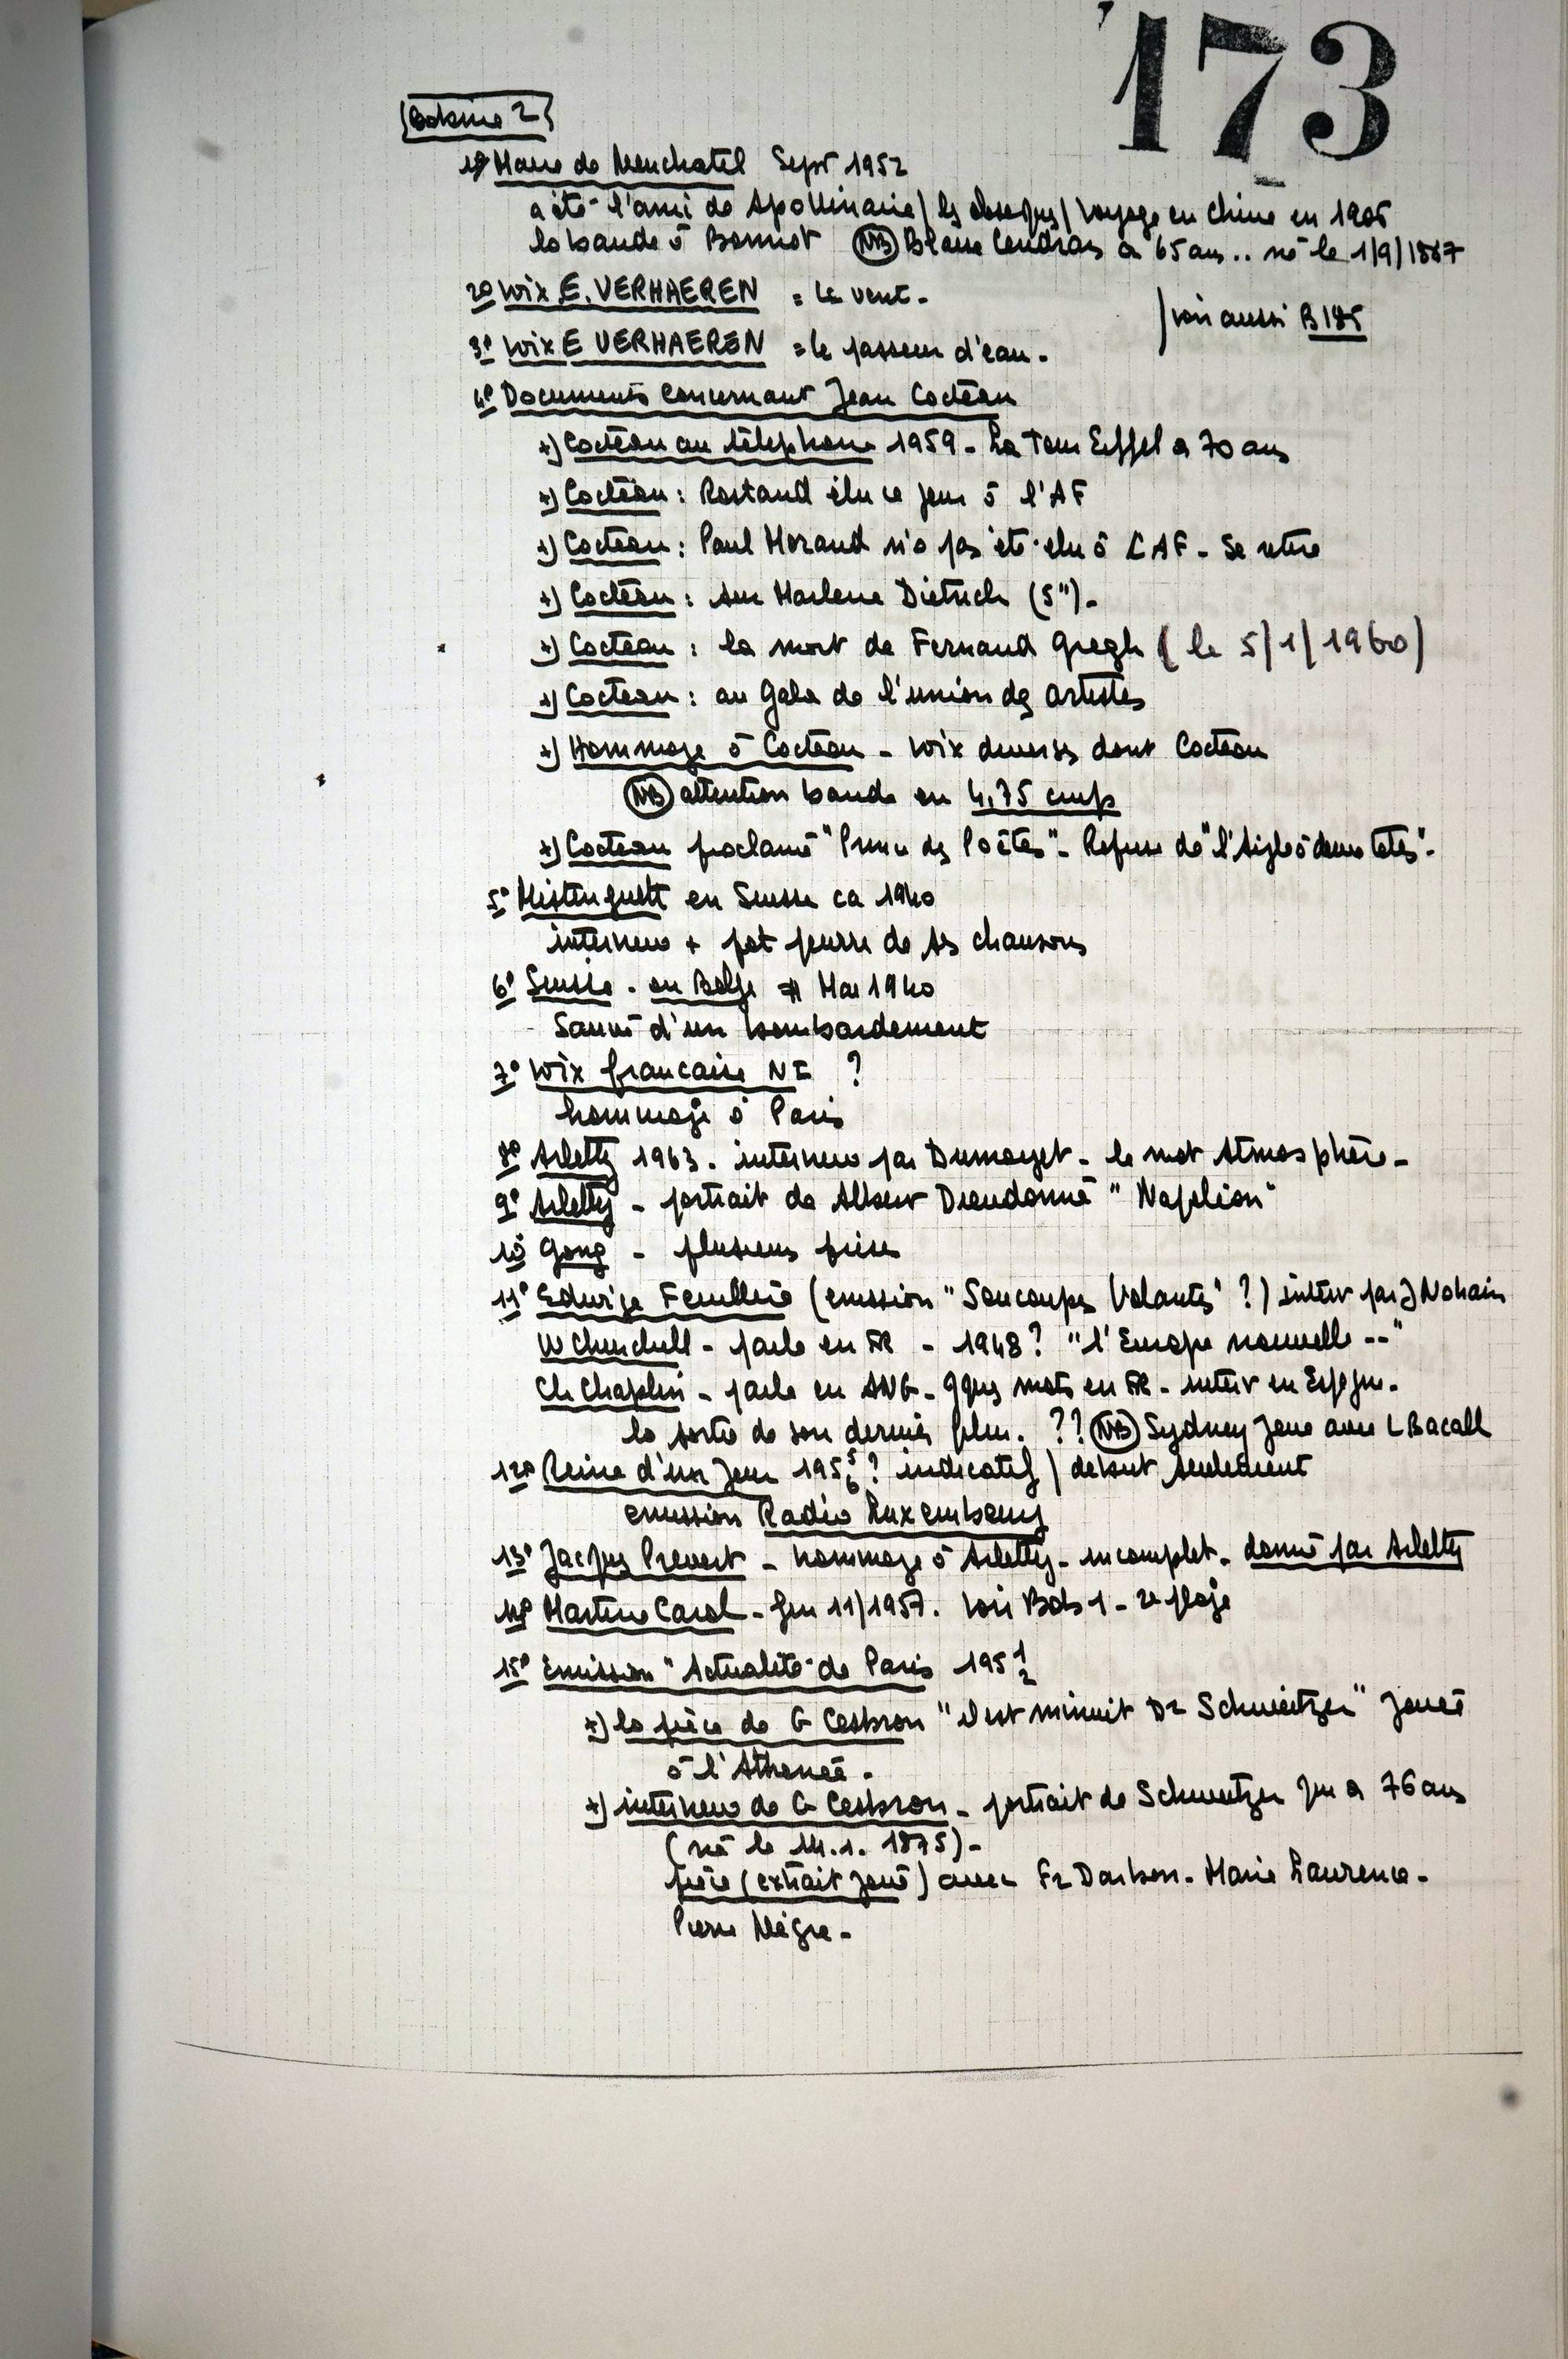 173
Bobine 2
1º Maire de Neuchatel Sept 1952
a été l'ami de Apollinaire / les obsèques / voyage en Chine en 1905
la bande à Bonnot NB Blaise Cendrars a 65 ans.. né le 1/9/1887
2º voix E. VERHAEREN = le vent -
/ voir aussi B185
3º voix E VERHAEREN = le passeur d'eau -
4º Documents concernant Jean Cocteau
+) Cocteau au téléphone 1959 - La Tour Eiffel a 70 ans
+) Cocteau : Rostand élu ce jour à l'AF
+) Cocteau : Paul Morand n'a pas été élu à L'AF - se retire
+) Cocteau : sur Marlene Dietrich (5") -
+) Cocteau : la mort de Fernand Gregh ( le 5/1/1960)
+) Cocteau : au Gala de l'union des artistes
+) Hommage à Cocteau - voix diverses dont Cocteau
NB attention bande en 4,75 cm/s
+) Cocteau proclamé "Prince des Poètes" - Refuse de "l'Aigle à deux têtes" -
5º Mistinguett en Suisse ca 1940
interview + pot pourri de ses chansons
6º Suisse - un Belge Mai 1940
Sauvé d'un bombardement
7º voix francaise NI ?
hommage à Paris
8º Arletty 1963 - interview par Dumayet - le mot Atmosphère -
9º Arletty - portrait de Albert Dieudonné "Napoléon"
10º Gong - plusieurs prises
11º Edwige Feuillère (emission "Soucoupes Volantes" ?) interv par J Nohain
W Churchill - parle en FR - 1948 ? "l'Europe nouvelle --"
Ch Chaplin - parle en ANG - qques mots en FR - interv en Espagne -
la sortie de son dernier film. ?? NB Sydney joue avec L Bacall
12º Reine d'un Jour 1955 6 ? indicatif / debut seulement
emission Radio Luxembourg
13º Jacques Prevert - hommage à Arletty - incomplet - donné par Arletty
14º Martine Carol - 11/1957. voir Bob 1 - 2e plage
15º Emission "Actualité de Paris 1951 2
+) la pièce de G Cesbron "il est minuit Dr Schweitzer" Jouée
à l'Athenée -
+) interview de G Cesbron - portrait de Schweitzer qui a 76 ans
(né le 14.1. 1875) -
pièce (extrait joué) avec Fr Darbon - Marie Laurence -
Pierre Nègre -